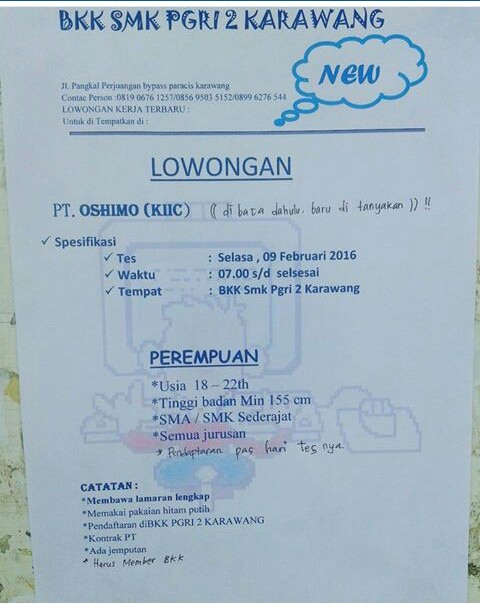 BKK SMK PGRI 2 KARAWANG
NEW
Jl. Pangkal Perjuangan bypass paracis karawang
Contac Person :0819 0676 1257/0856 9503 5152/0899 6276 544
LOWONGAN KERJA TERBARU :
Untuk di Tempatkan di :
LOWONGAN
PT. OSHIMO (KIIC) (( di baca dahulu. baru di tanyakan )) !!
✓ Spesifikasi
✓ Tes : Selasa , 09 Februari 2016
✓ Waktu : 07.00 s/d selsesai
✓ Tempat : BKK Smk Pgri 2 Karawang
PEREMPUAN
*Usia 18 – 22th
*Tinggi badan Min 155 cm
*SMA / SMK Sederajat
*Semua jurusan
* Pendaptaran pas hari tes nya.
CATATAN :
*Membawa lamaran lengkap
*Memakai pakaian hitam putih
*Pendaftaran diBKK PGRI 2 KARAWANG
*Kontrak PT
*Ada jemputan
* Harus Member BKK